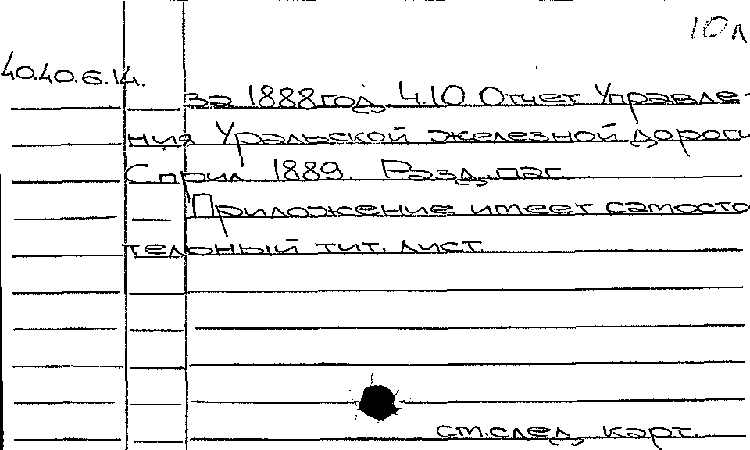 10л
40.40.6.14.
за 1888год. Ч.10 Отчет Управле-
ния Уральской железной дороги
С прил 1889. Разд. паг.
Приложение имеет самосто
тельный тит. лист.
см.след. карт.